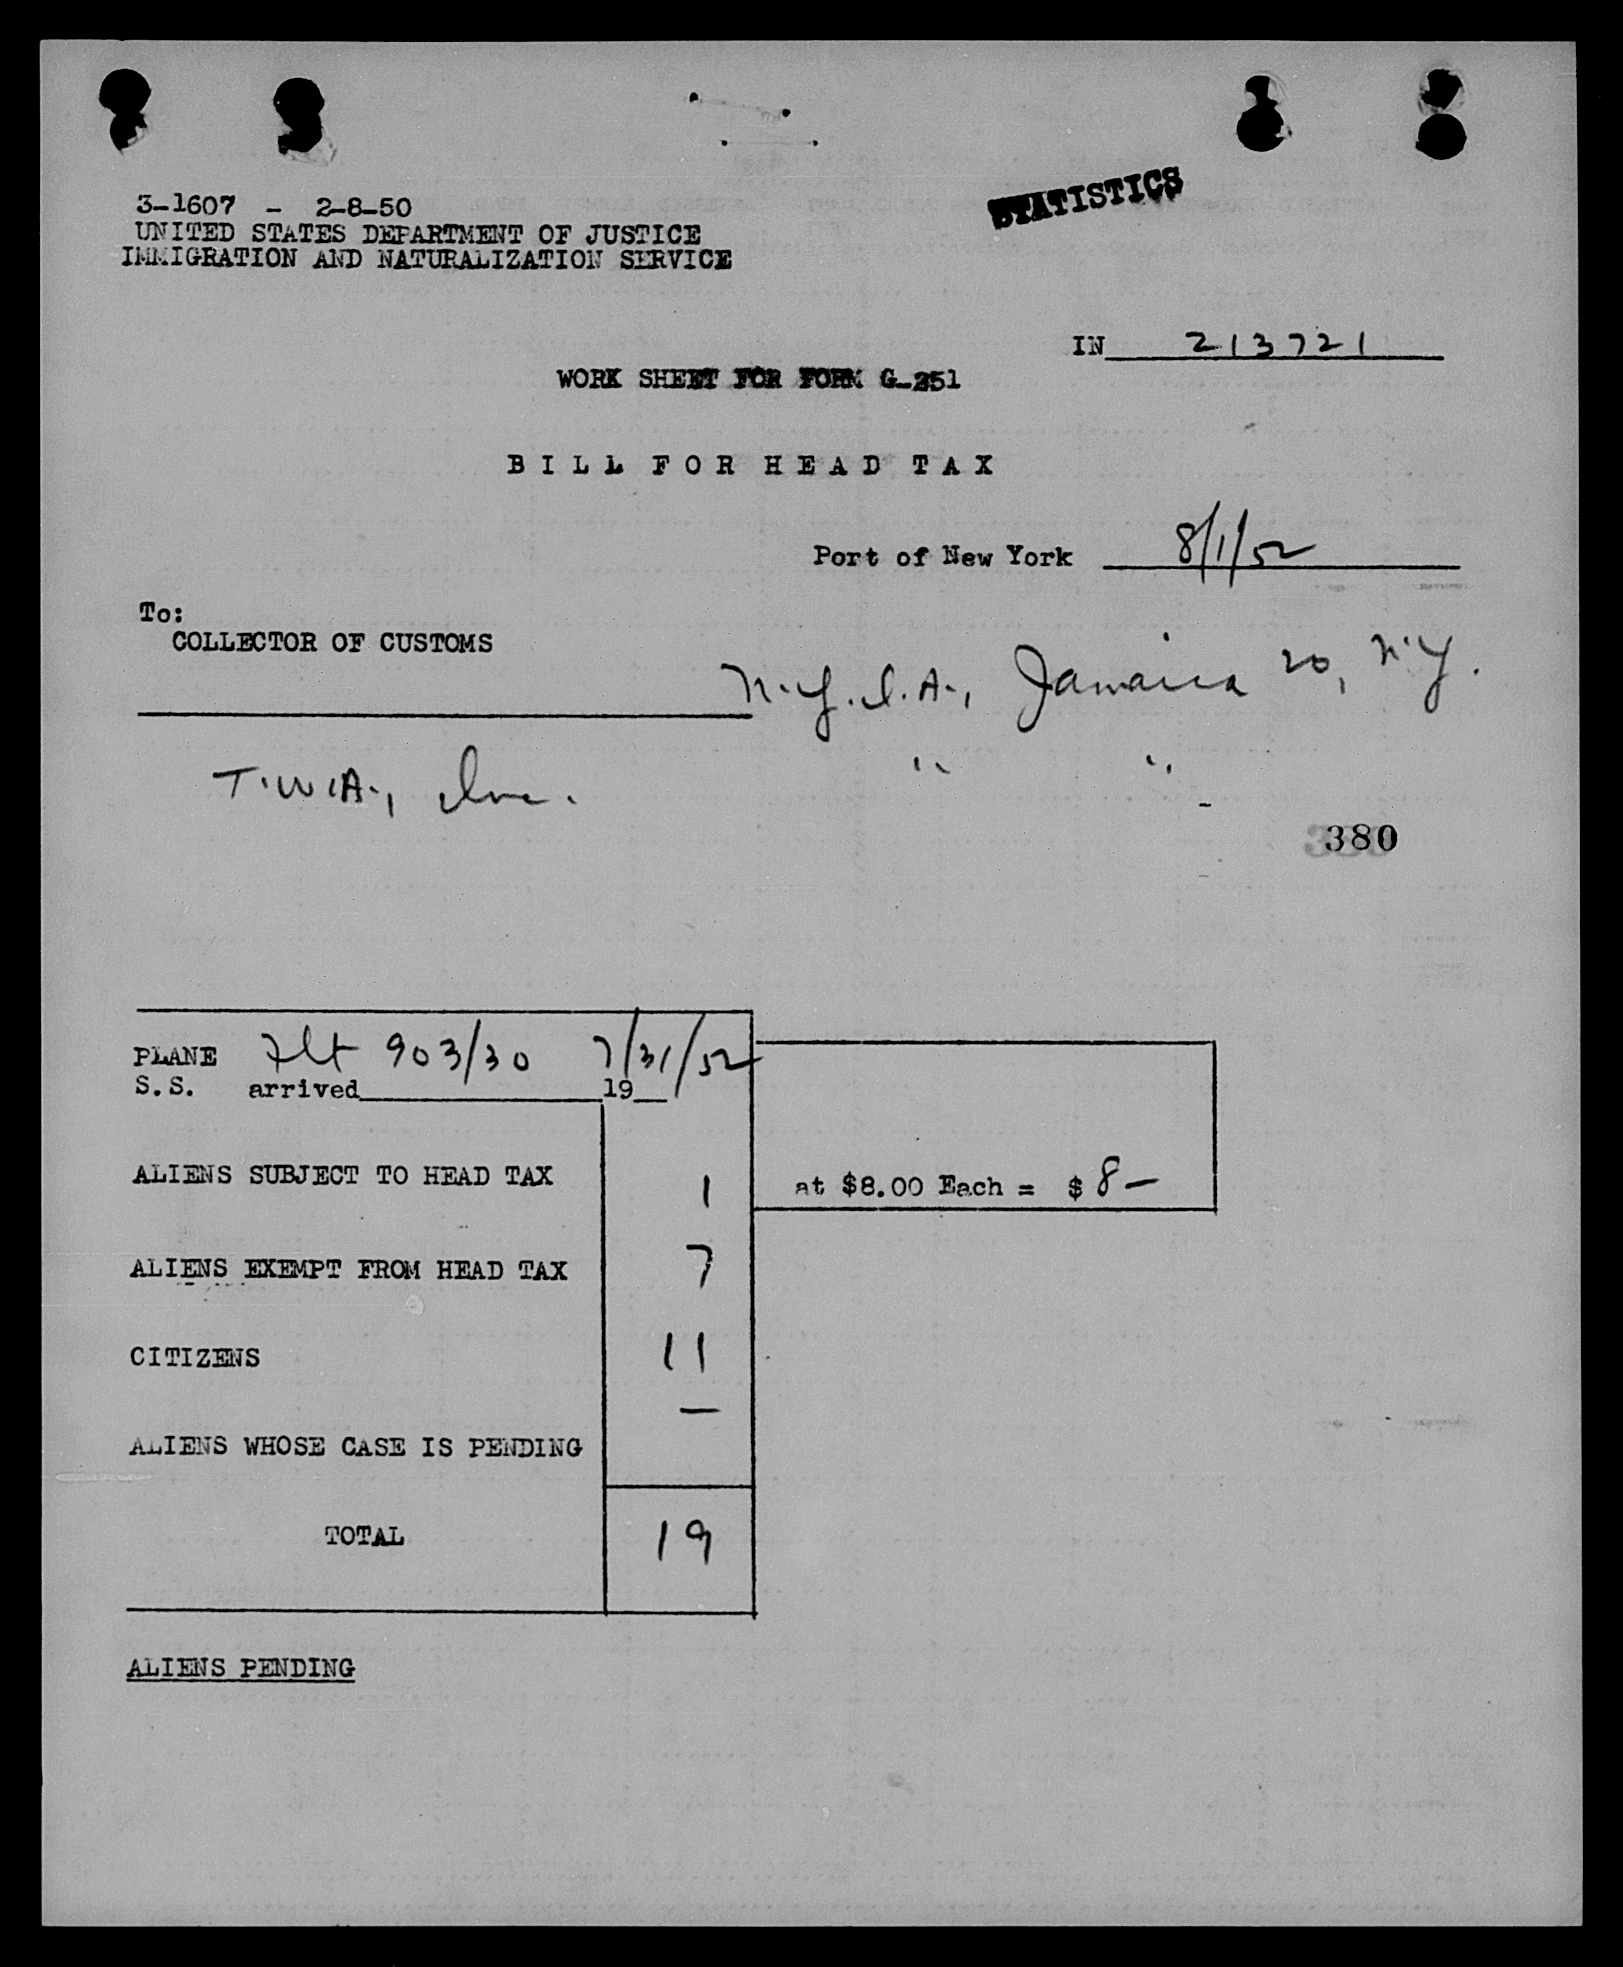 STATISTICS
3-1607 - 2-8-50
UNITED STATES DEPARTMENT OF JUSTICE
IMMIGRATION AND NATURALIZATION SERVICE
IN 213721
WORK SHEET FOR FORM G-251
BILL FOR HEAD TAX
Port of New York 8/1/52
To:
COLLECTOR OF CUSTOMS
N.Y.I.A., Jamaica 20, N.Y.
T.W.A., Inc. " "
380
PLANE Flt 903/30 7/31/52
S.S. arrived 19
ALIENS SUBJECT TO HEAD TAX 1 at $8.00 Each = $ 8 —
ALIENS EXEMPT FROM HEAD TAX 7
CITIZENS 11
ALIENS WHOSE CASE IS PENDING —
TOTAL 19
ALIENS PENDING